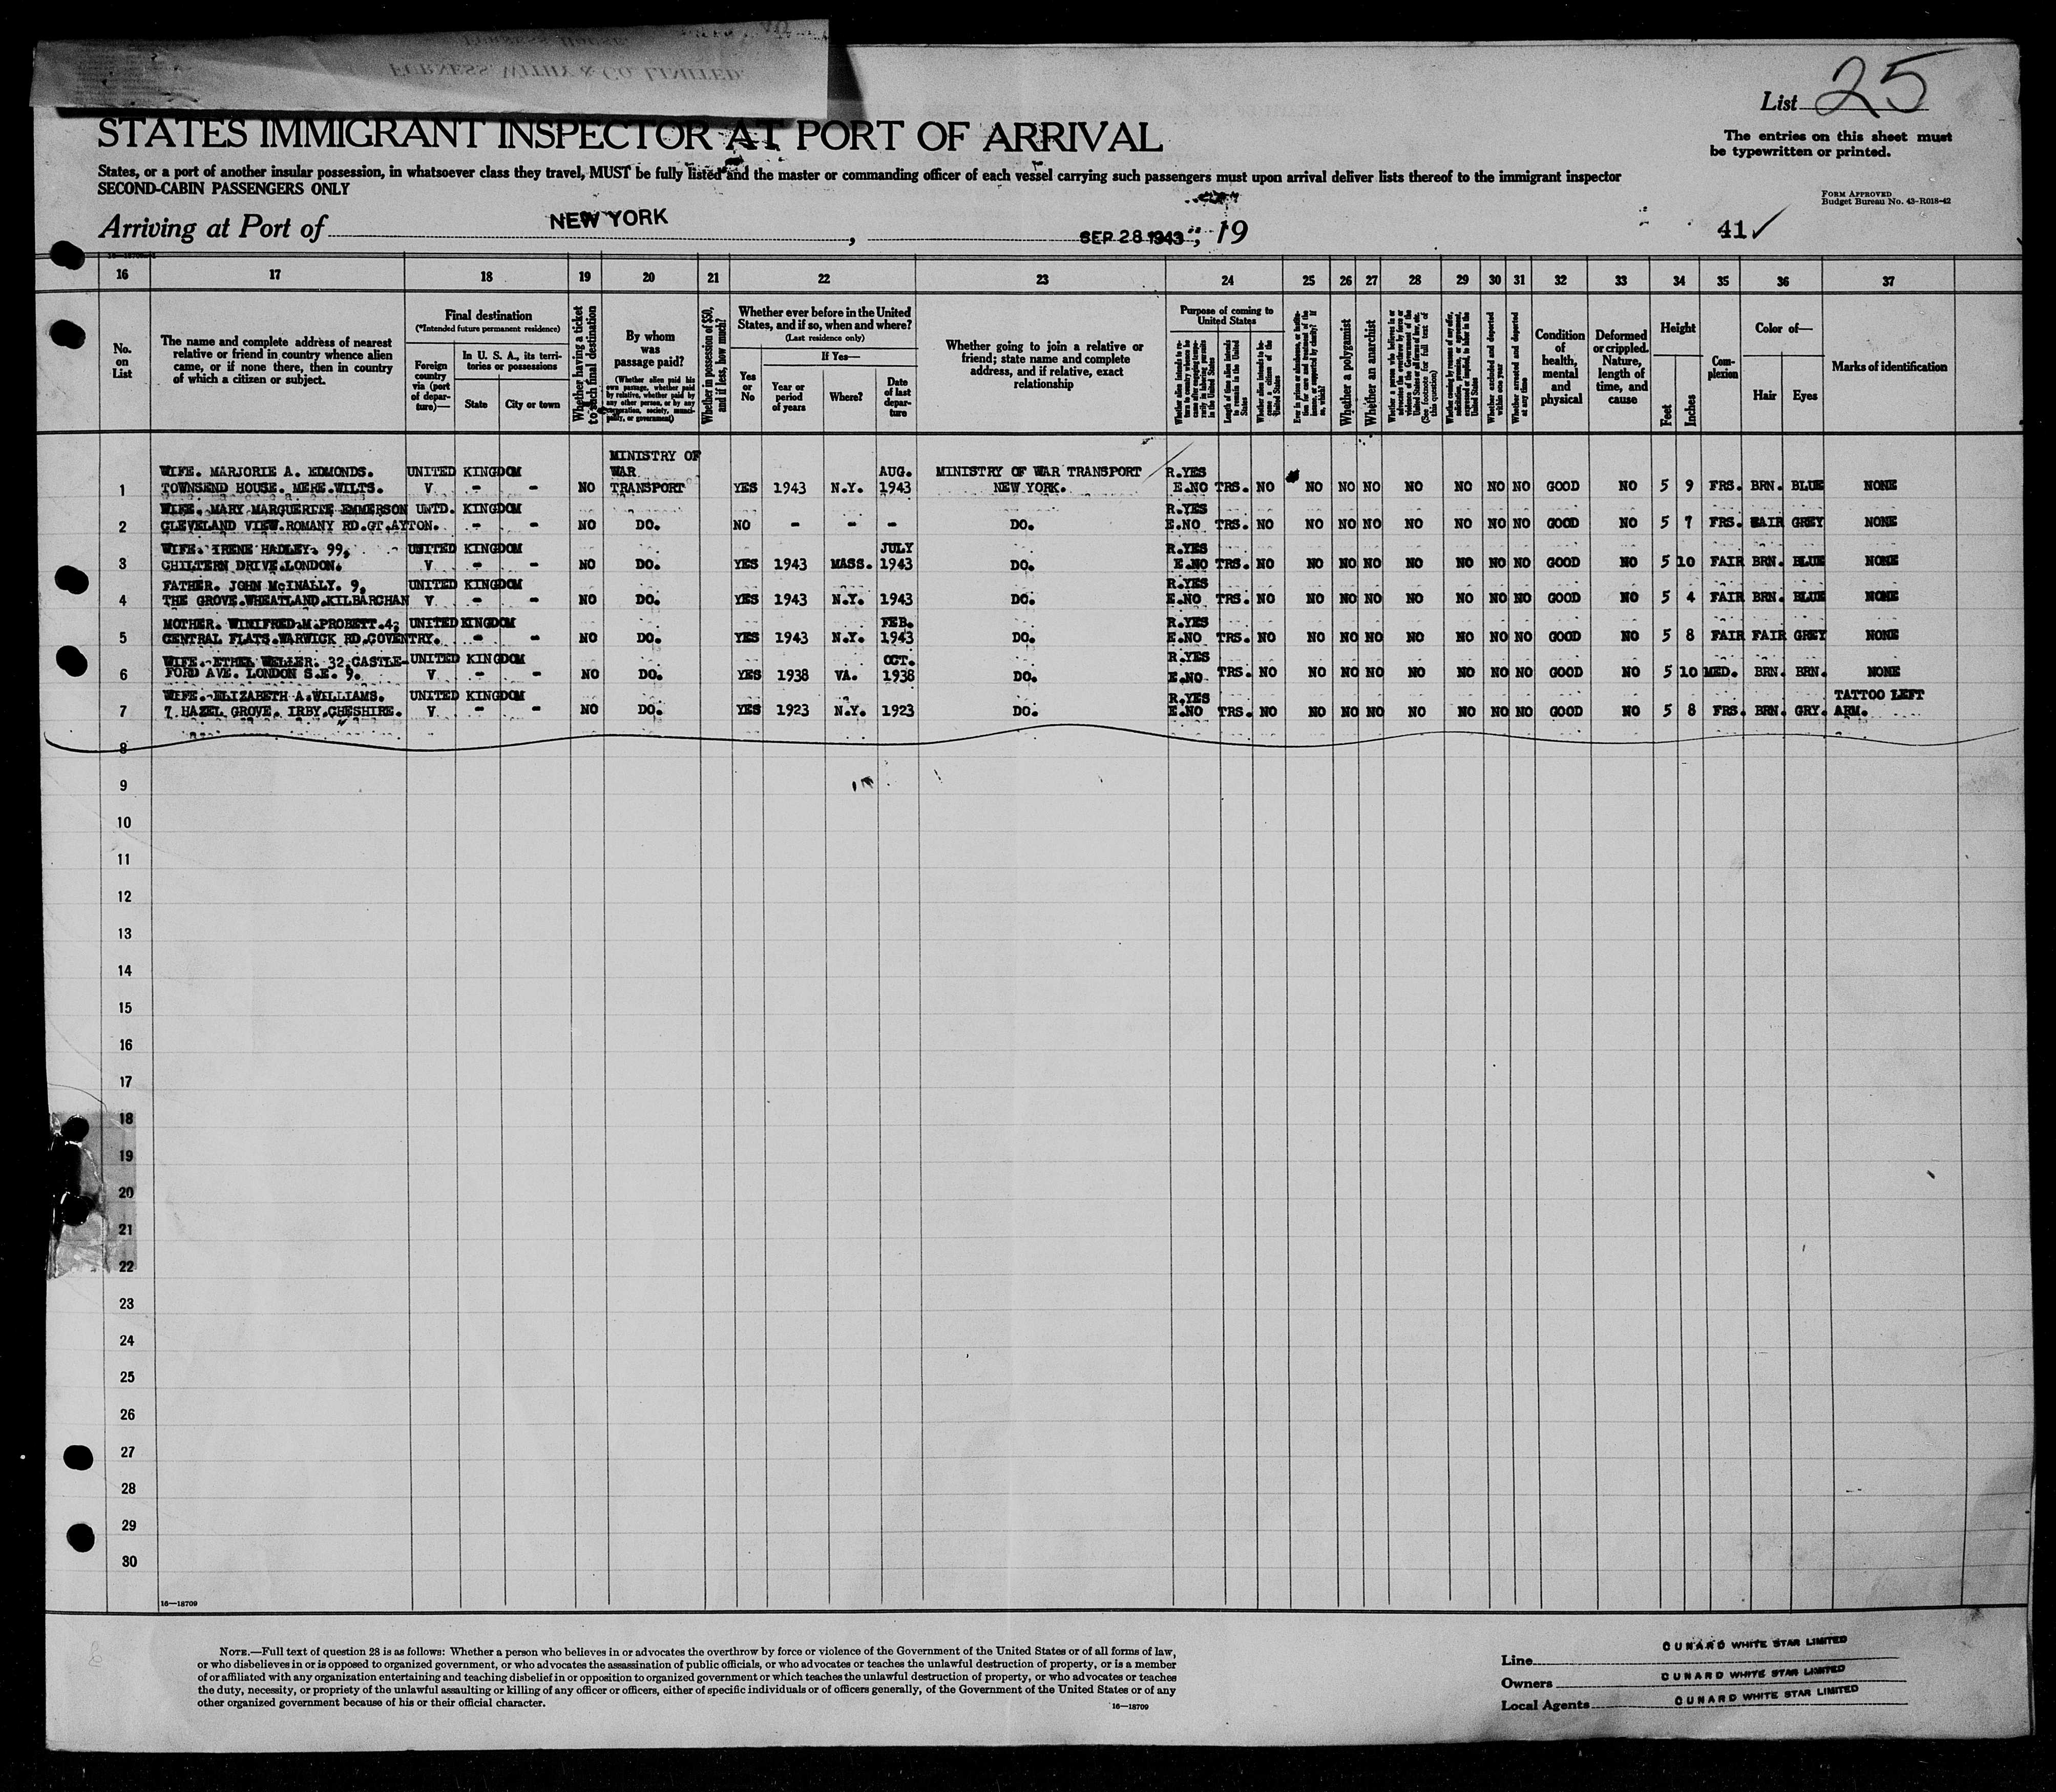 FURNESS, WITHY & CO. LIMITED.
List 25
STATES IMMIGRANT INSPECTOR AT PORT OF ARRIVAL
The entries on this sheet must
be typewritten or printed.
States, or a port of another insular possession, in whatsoever class they travel, MUST be fully listed and the master or commanding officer of each vessel carrying such passengers must upon arrival deliver lists thereof to the immigrant inspector
SECOND-CABIN PASSENGERS ONLY
FORM APPROVED
Budget Bureau No. 43-R018-42
Arriving at Port of NEW YORK, SEP 28 1943, 19 41 ✓
16 17 18 19 20 21 22 23 24 25 26 27 28 29 30 31 32 33 34 35 36 37
No. on List
The name and complete address of nearest
relative or friend in country whence alien
came, or if none there, then in country
of which a citizen or subject.
Final destination
(*Intended future permanent residence)
Foreign country via (port of departure)—
In U. S. A., its territories or possessions
State
City or town
Whether having a ticket to such final destination
By whom was passage paid?
(Whether alien paid his own passage, whether paid by relative, whether paid by any other person, or by any corporation, society, municipality, or government)
Whether in possession of $50, and if less, how much?
Whether ever before in the United States, and if so, when and where?
(Last residence only)
Yes or No
If Yes—
Year or period of years
Where?
Date of last departure
Whether going to join a relative or
friend; state name and complete
address, and if relative, exact
relationship
Purpose of coming to United States
Length of time alien intends to remain in the United States
Whether alien intends to become a citizen of the United States
Whether a polygamist
Whether an anarchist
Whether excluded and deported within one year
Whether arrested and deported at any time
Condition of health, mental and physical
Deformed or crippled. Nature, length of time, and cause
Height
Feet
Inches
Complexion
Color of—
Hair
Eyes
Marks of identification
MINISTRY OF
WIFE. MARJORIE A. EDMONDS. UNITED KINGDOM WAR AUG. MINISTRY OF WAR TRANSPORT R.YES
1 TOWNSEND HOUSE. MERE.WILTS. V - - NO TRANSPORT YES 1943 N.Y. 1943 NEW YORK. E.NO TRS. NO NO NO NO NO NO NO NO GOOD NO 5 9 FRS. BRN. BLUE NONE
WIFE. MARY MARGUERITE EMMERSON UNTD. KINGDOM R.YES
2 CLEVELAND VIEW.ROMANY RD.GT.AYTON. - - NO DO. NO - - - DO. E.NO TRS. NO NO NO NO NO NO NO NO GOOD NO 5 7 FRS. FAIR GREY NONE
WIFE. IRENE HADLEY. 99, UNITED KINGDOM JULY R.YES
3 CHILTERN DRIVE.LONDON. V - - NO DO. YES 1943 MASS. 1943 DO. E.NO TRS. NO NO NO NO NO NO NO NO GOOD NO 5 10 FAIR BRN. BLUE NONE
FATHER. JOHN McINALLY. 9, UNITED KINGDOM R.YES
4 THE GROVE.WHEATLAND.KILBARCHAN V - - NO DO. YES 1943 N.Y. 1943 DO. E.NO TRS. NO NO NO NO NO NO NO NO GOOD NO 5 4 FAIR BRN. BLUE NONE
MOTHER. WINIFRED.M.PROBETT.4, UNITED KINGDOM FEB. R.YES
5 CENTRAL FLATS.WARWICK RD.COVENTRY. - - NO DO. YES 1943 N.Y. 1943 DO. E.NO TRS. NO NO NO NO NO NO NO NO GOOD NO 5 8 FAIR FAIR GREY NONE
WIFE. ETHEL WELLER. 32,CASTLE- UNITED KINGDOM OCT. R.YES
6 FORD AVE. LONDON S.E. 9. V - - NO DO. YES 1938 VA. 1938 DO. E.NO TRS. NO NO NO NO NO NO NO NO GOOD NO 5 10 MED. BRN. BRN. NONE
WIFE. ELIZABETH A.WILLIAMS. UNITED KINGDOM R.YES TATTOO LEFT
7 7 HAZEL GROVE. IRBY.CHESHIRE. V - - NO DO. YES 1923 N.Y. 1923 DO. E.NO TRS. NO NO NO NO NO NO NO NO GOOD NO 5 8 FRS. BRN. GRY. ARM.
8
9
10
11
12
13
14
15
16
17
18
19
20
21
22
23
24
25
26
27
28
29
30
16—18709
NOTE.—Full text of question 28 is as follows: Whether a person who believes in or advocates the overthrow by force or violence of the Government of the United States or of all forms of law,
or who disbelieves in or is opposed to organized government, or who advocates the assassination of public officials, or who advocates or teaches the unlawful destruction of property, or is a member
of or affiliated with any organization entertaining and teaching disbelief in or opposition to organized government or which teaches the unlawful destruction of property, or who advocates or teaches
the duty, necessity, or propriety of the unlawful assaulting or killing of any officer or officers, either of specific individuals or of officers generally, of the Government of the United States or of any
other organized government because of his or their official character.
16—18709
Line CUNARD WHITE STAR LIMITED
Owners CUNARD WHITE STAR LIMITED
Local Agents CUNARD WHITE STAR LIMITED